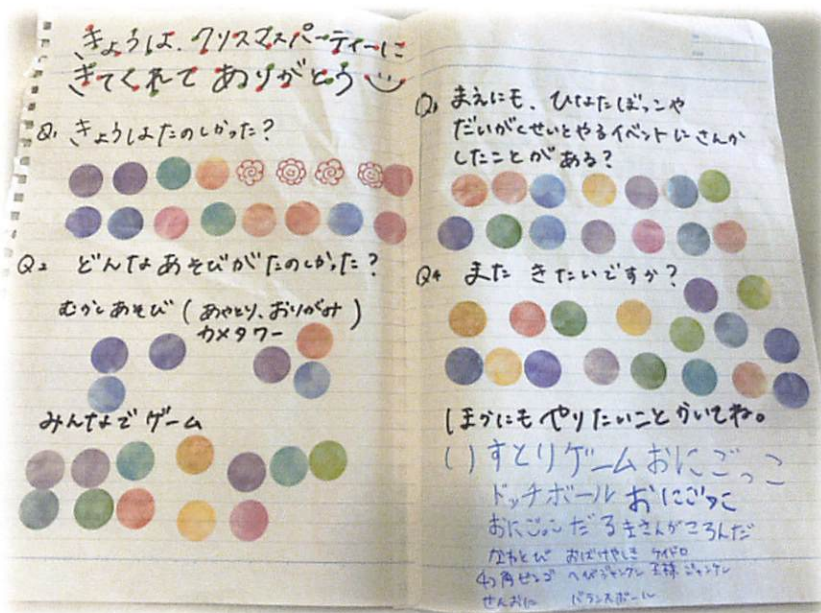 きょうは、クリスマスパーティーに
きてくれて ありがとう
Q1 きょうはたのしかった?
Q2 どんなあそびがたのしかった?
むかしあそび(あやとり、おりがみ
カメタワー)
みんなでゲーム
Q3 まえにも、ひなたぼっこや
だいがくせいとやるイベントにさんか
したことがある?
Q4 また きたいですか?
ほかにも やりたいこと かいてね。
いすとりゲーム おにごっこ
ドッチボール おにごっこ
おにごっこ だるまさんがころんだ
なわとび おばけやしき ケイドロ
へびジャンケン 王様ジャンケン
バランスボール